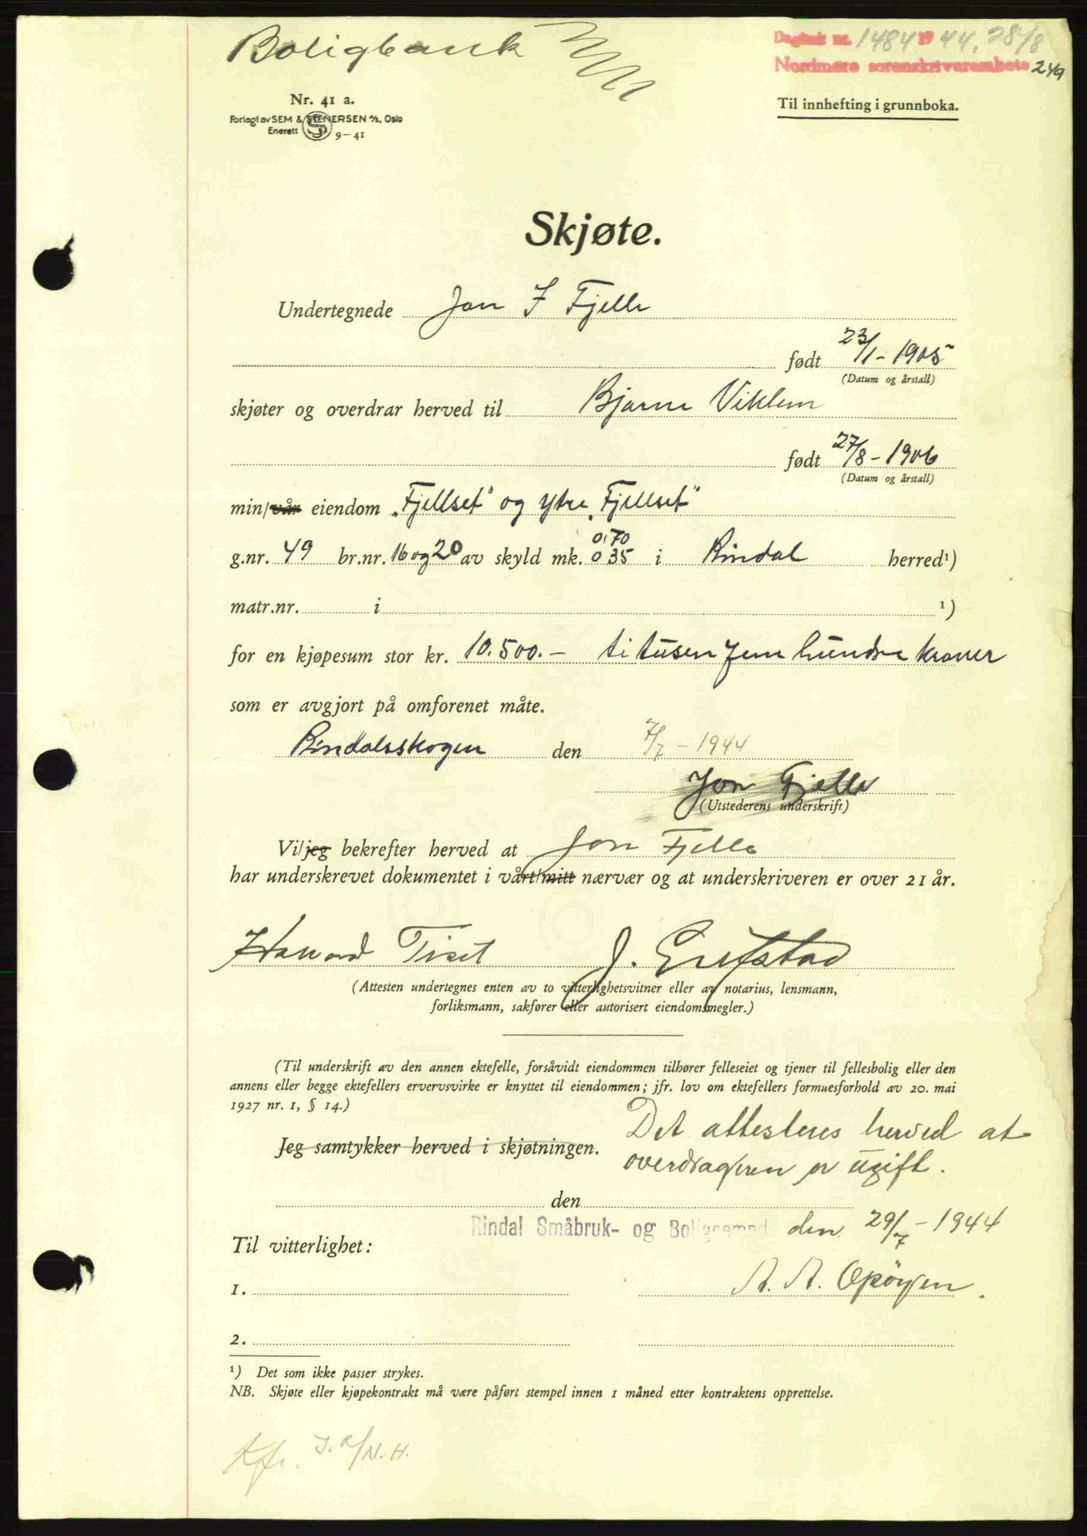 Boligbank
Dagbok nr. 1484 1944, 28/8
Nordmøre sorenskriverembete 249
Nr. 41 a.
Forlagt av SEM & STENERSEN A/S, Oslo
Enerett 9-41
Til innhefting i grunnboka.
Skjøte.
Undertegnede Jon J Fjelle
født 23/1-1905
(Datum og årstall)
skjøter og overdrar herved til Bjarne Viklem
født 27/8-1906
(Datum og årstall)
min/vår eiendom „Fjellset" og ytre „Fjellset"
0,70
g.nr. 49 br.nr. 16 og 20 av skyld mk. 0 35 i Rindal herred¹)
matr.nr. i ¹)
for en kjøpesum stor kr. 10.500.- ti tusen fem hundre kroner
som er avgjort på omforenet måte.
Rindalsskogen den 7/7-1944
Jon Fjelle
(Utstederens underskrift)
Vi/jeg bekrefter herved at Jon Fjelle
har underskrevet dokumentet i vårt/mitt nærvær og at underskriveren er over 21 år.
Havard Tiset J.
(Attesten undertegnes enten av to vitterlighetsvitner eller av notarius, lensmann,
forliksmann, sakfører eller autorisert eiendomsmegler.)
(Til underskrift av den annen ektefelle, forsåvidt eiendommen tilhører felleseiet og tjener til fellesbolig eller den
annens eller begge ektefellers ervervsvirke er knyttet til eiendommen; jfr. lov om ektefellers formuesforhold av 20. mai
1927 nr. 1, § 14.)
Det attesteres herved at
Jeg samtykker herved i skjøtningen.
overdrageren er ugift.
den
Rindal Småbruk- og Bolignemnd den 29/7-1944
Til vitterlighet:
1. A. A. Opøyen.
2.
¹) Det som ikke passer strykes.
NB. Skjøte eller kjøpekontrakt må være påført stempel innen 1 måned etter kontraktens opprettelse.